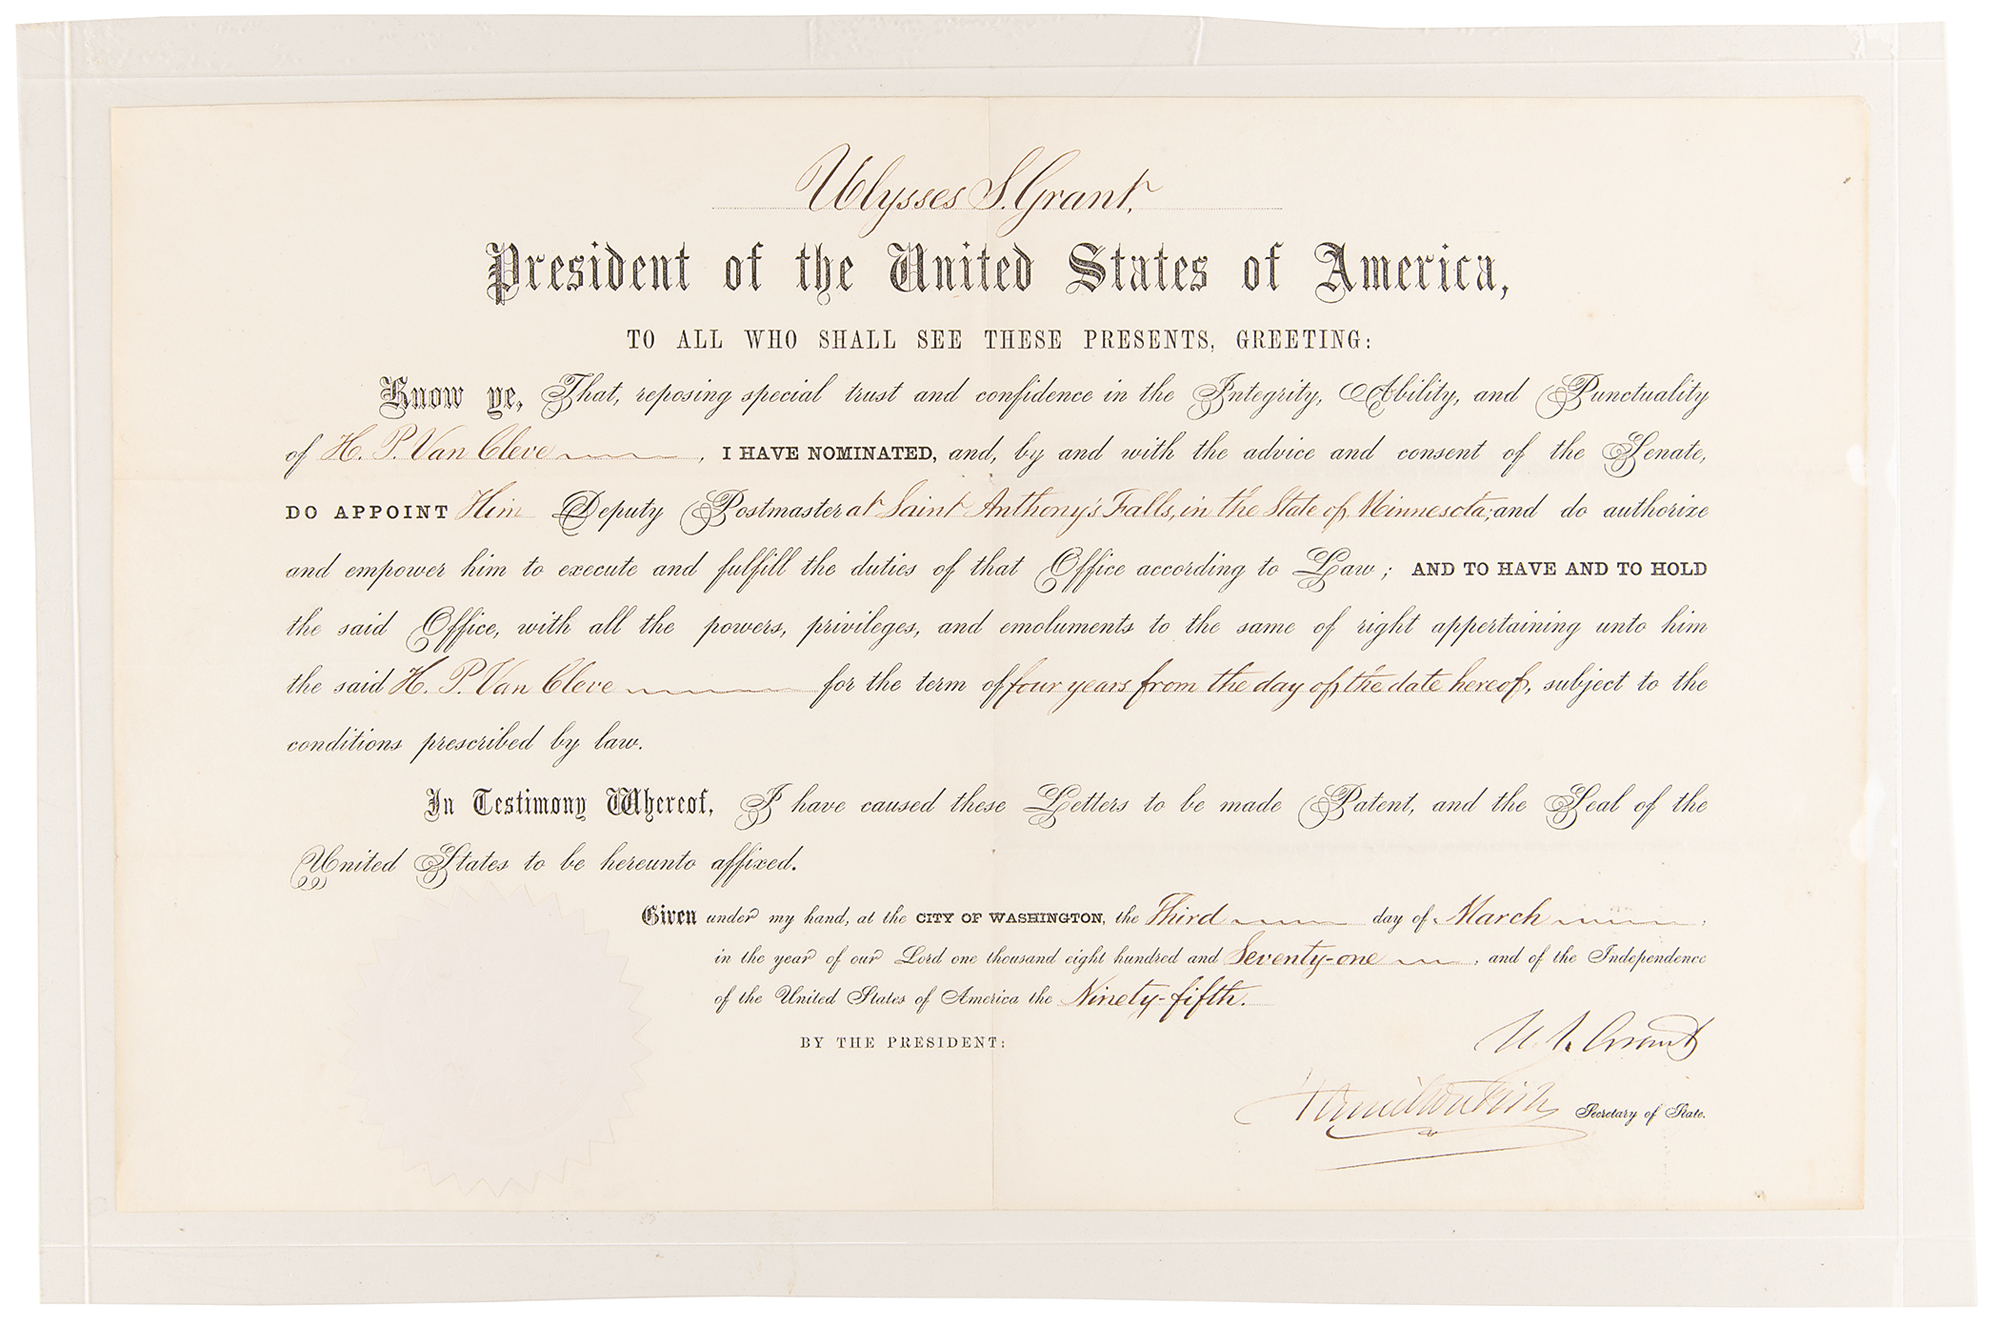 Ulysses S. Grant,
President of the United States of America,
TO ALL WHO SHALL SEE THESE PRESENTS, GREETING:
Know ye, That, reposing special trust and confidence in the Integrity, Ability, and Punctuality
of H. P. Van Cleve, I HAVE NOMINATED, and, by and with the advice and consent of the Senate,
DO APPOINT Him Deputy Postmaster at Saint Anthony's Falls, in the State of Minnesota; and do authorize
and empower him to execute and fulfill the duties of that Office according to Law; AND TO HAVE AND TO HOLD
the said Office, with all the powers, privileges, and emoluments to the same of right appertaining unto him
the said H. P. Van Cleve for the term of four years from the day of the date hereof, subject to the
conditions prescribed by law.
In Testimony Whereof, I have caused these Letters to be made Patent, and the Seal of the
United States to be hereunto affixed.
Given under my hand, at the CITY OF WASHINGTON, the Third day of March,
in the year of our Lord one thousand eight hundred and Seventy-one, and of the Independence
of the United States of America the Ninety-fifth.
BY THE PRESIDENT:
U. S. Grant
Hamilton Fish Secretary of State.